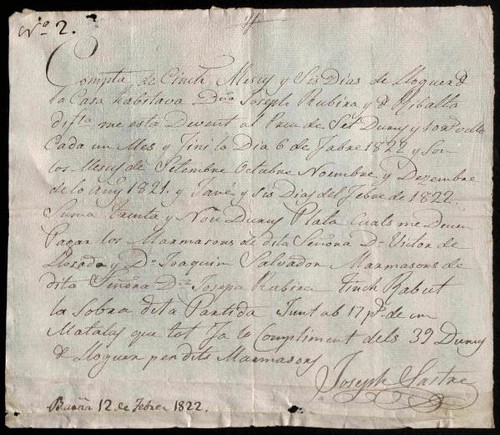 Nº 2.
Compta de Cinch Mesus y Sis Dias de Lloguer de
la Casa habitava Dña Joseph Rubira y de Riballa
difta me esta Devent al Preu de Set Durus y
Cada un Mes y Fins lo Dia 6 de Fabre 1822 y Son
los Mesus de Setembre Octubre Noembre y Dezembre
de lo Any 1821. y Jane y sis Dias del Febre de 1822.
Suma Trenta y Nou Durus Plata Cuals me Deven
Pagar los Marmasors de dita Señora Dn
Llosada y Dn Joaquin Salvador Marmasors de
dita Señora Dña Josepa Rubira Tinch Rabut
la Sobra dita Partida Junt ab 17 ps de un
Matalas que tot fa lo Compliment dels 39 Durus
de Lloguer per dits Marmasors
Joseph Sastre
12 de Febrer 1822.